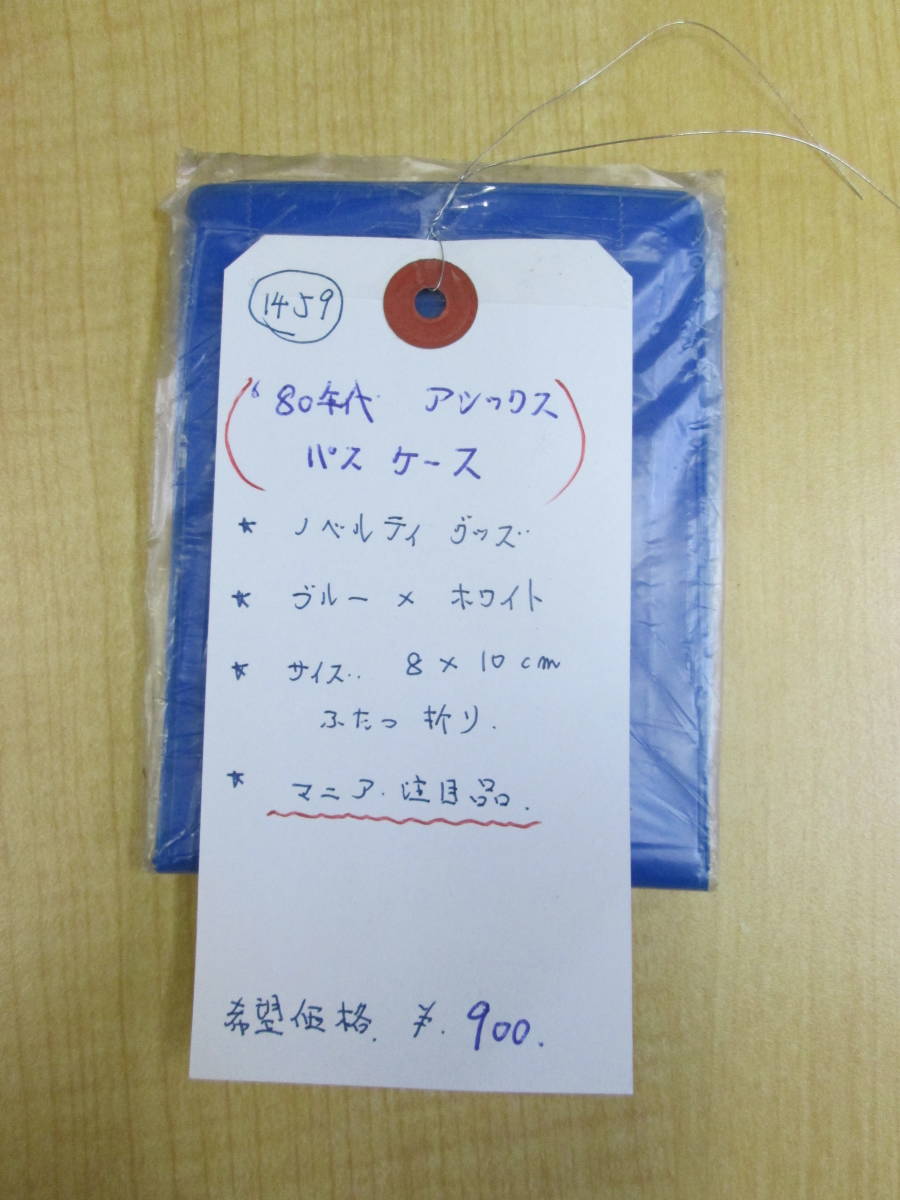 1459
'80年代 アシックス
パス ケース
★ ノベルティ グッズ
★ ブルー × ホワイト
★ サイズ 8×10cm
ふたつ折り.
★ マニア注目品.
希望価格. ¥.900.